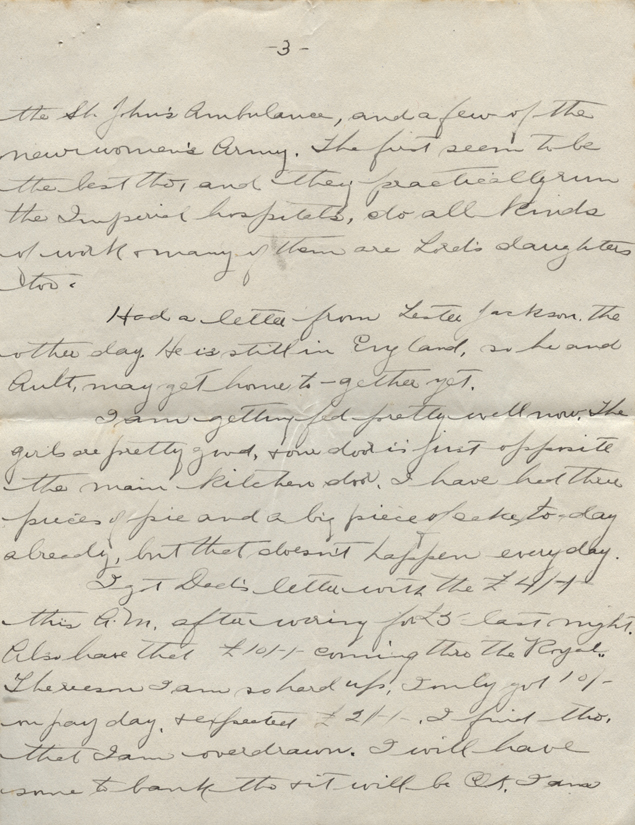 -3-
the St. John's Ambulance, and a few of the
new women's Army. The first seem to be
the best tho, and they practically run
the Imperial hospitals, do all kinds
of work & many of them are Lord's daughters
too.
Had a letter from Lester Jackson the
other day. He is still in England, so he and
Ault, may get home to-gether yet.
I am getting fed pretty well now. The
girls are pretty good, & our door is just opposite
the main kitchen door. I have had three
pieces of pie and a big piece of cake to-day
already, but that doesn't happen every day.
I got Dad's letter with the £4/-/-
this A.M. after wiring for £5 last night.
Also have that £10/-/- coming thro the Royal.
The reason I am so hard up, I only got 10/-
on pay day, & expected £2/-/-. I find tho,
that I am overdrawn. I will have
some to bank tho & it will be O.K. I am